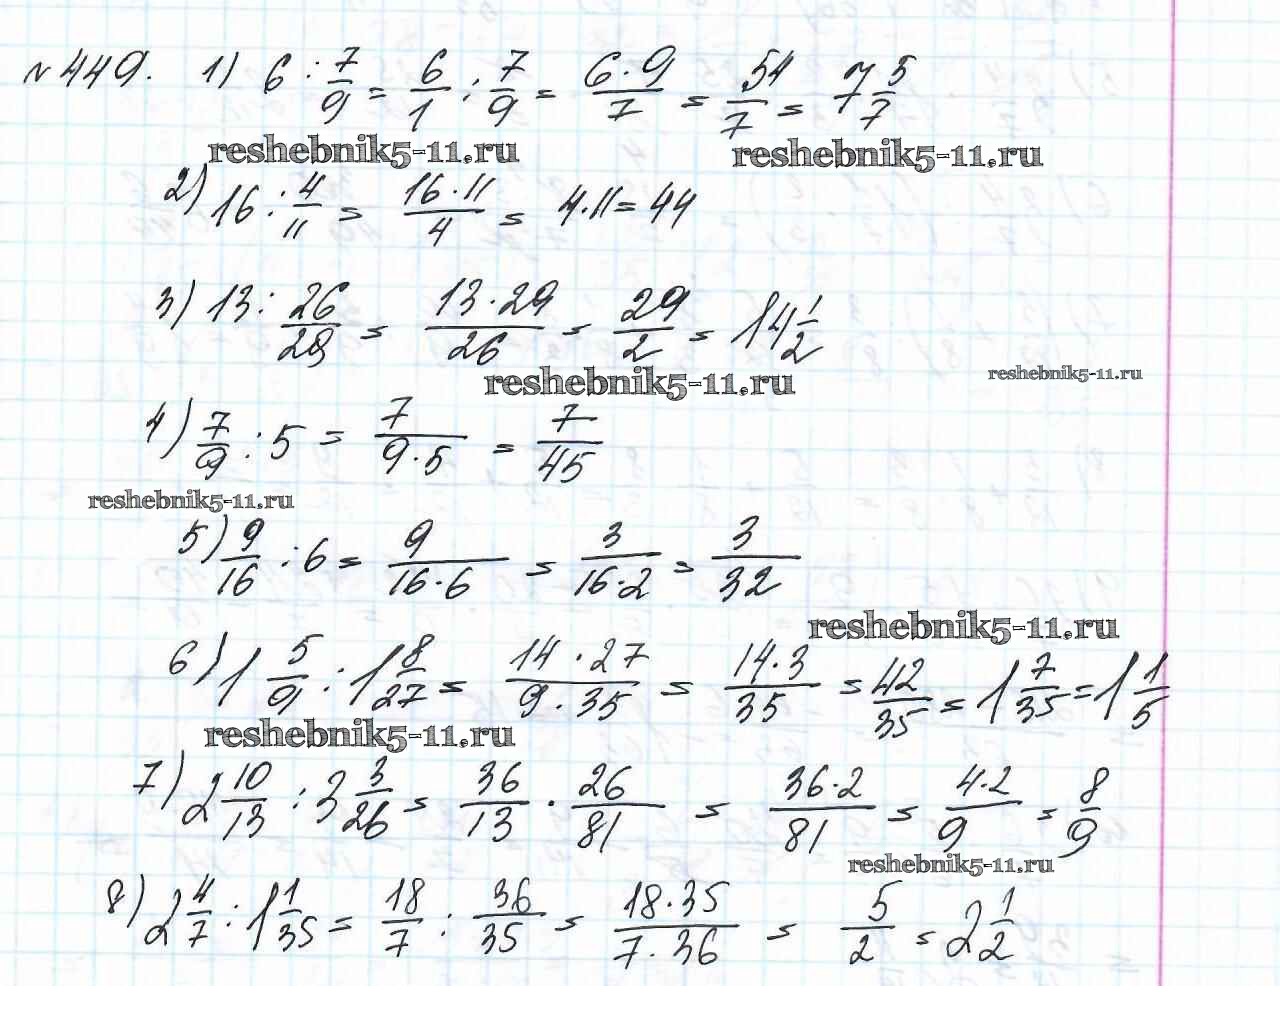 №449. 1) 6 : 7/9 = 6/1 : 7/9 = 6·9/7 = 54/7 = 7 5/7
reshebnik5-11.ru reshebnik5-11.ru
2) 16 : 4/11 = 16·11/4 = 4·11 = 44
3) 13 : 26/29 = 13·29/26 = 29/2 = 14 1/2
reshebnik5-11.ru reshebnik5-11.ru
4) 7/9 : 5 = 7/9·5 = 7/45
reshebnik5-11.ru
5) 9/16 : 6 = 9/16·6 = 3/16·2 = 3/32
reshebnik5-11.ru
6) 1 5/9 : 1 8/27 = 14·27/9·35 = 14·3/35 = 42/35 = 1 7/35 = 1 1/5
reshebnik5-11.ru
7) 2 10/13 : 3 3/26 = 36/13 · 26/81 = 36·2/81 = 4·2/9 = 8/9
reshebnik5-11.ru
8) 2 4/7 : 1 1/35 = 18/7 : 36/35 = 18·35/7·36 = 5/2 = 2 1/2